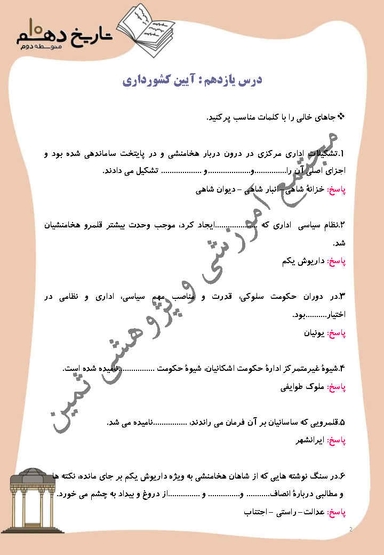 تاریخ دهم
متوسطه دوم
درس یازدهم : آیین کشورداری
❖ جاهای خالی را با کلمات مناسب پرکنید.
۱.تشکیلات اداری مرکزی در درون دربار هخامنشی و در پایتخت ساماندهی شده بود و
اجزای اصلی آن را...............و..................و ................... تشکیل می دادند.
پاسخ: خزانۀ شاهی– انبار شاهی – دیوان شاهی
۲.نظام سیاسی اداری که ...................ایجاد کرد، موجب وحدت بیشتر قلمرو هخامنشیان
شد.
پاسخ: داریوش یکم
۳.در دوران حکومت سلوکی، قدرت و مناصب مهم سیاسی، اداری و نظامی در
اختیار..........بود.
پاسخ: یونیان
۴.شیوۀ غیرمتمرکز ادارۀ حکومت اشکانیان، شیوۀ حکومت ................نامیده شده است.
پاسخ: ملوک طوایفی
۵.قلمرویی که ساسانیان بر آن فرمان می راندند، ...............نامیده می شد.
پاسخ: ایرانشهر
۶.در سنگ نوشته هایی که از شاهان هخامنشی به ویژه داریوش یکم بر جای مانده، نکته ها
و مطالبی دربارۀ انصاف........... و..............و ..............از دروغ و بیداد به چشم می خورد.
پاسخ: عدالت– راستی – اجتناب
مجتمع آموزشی و پژوهشی ثمین
2